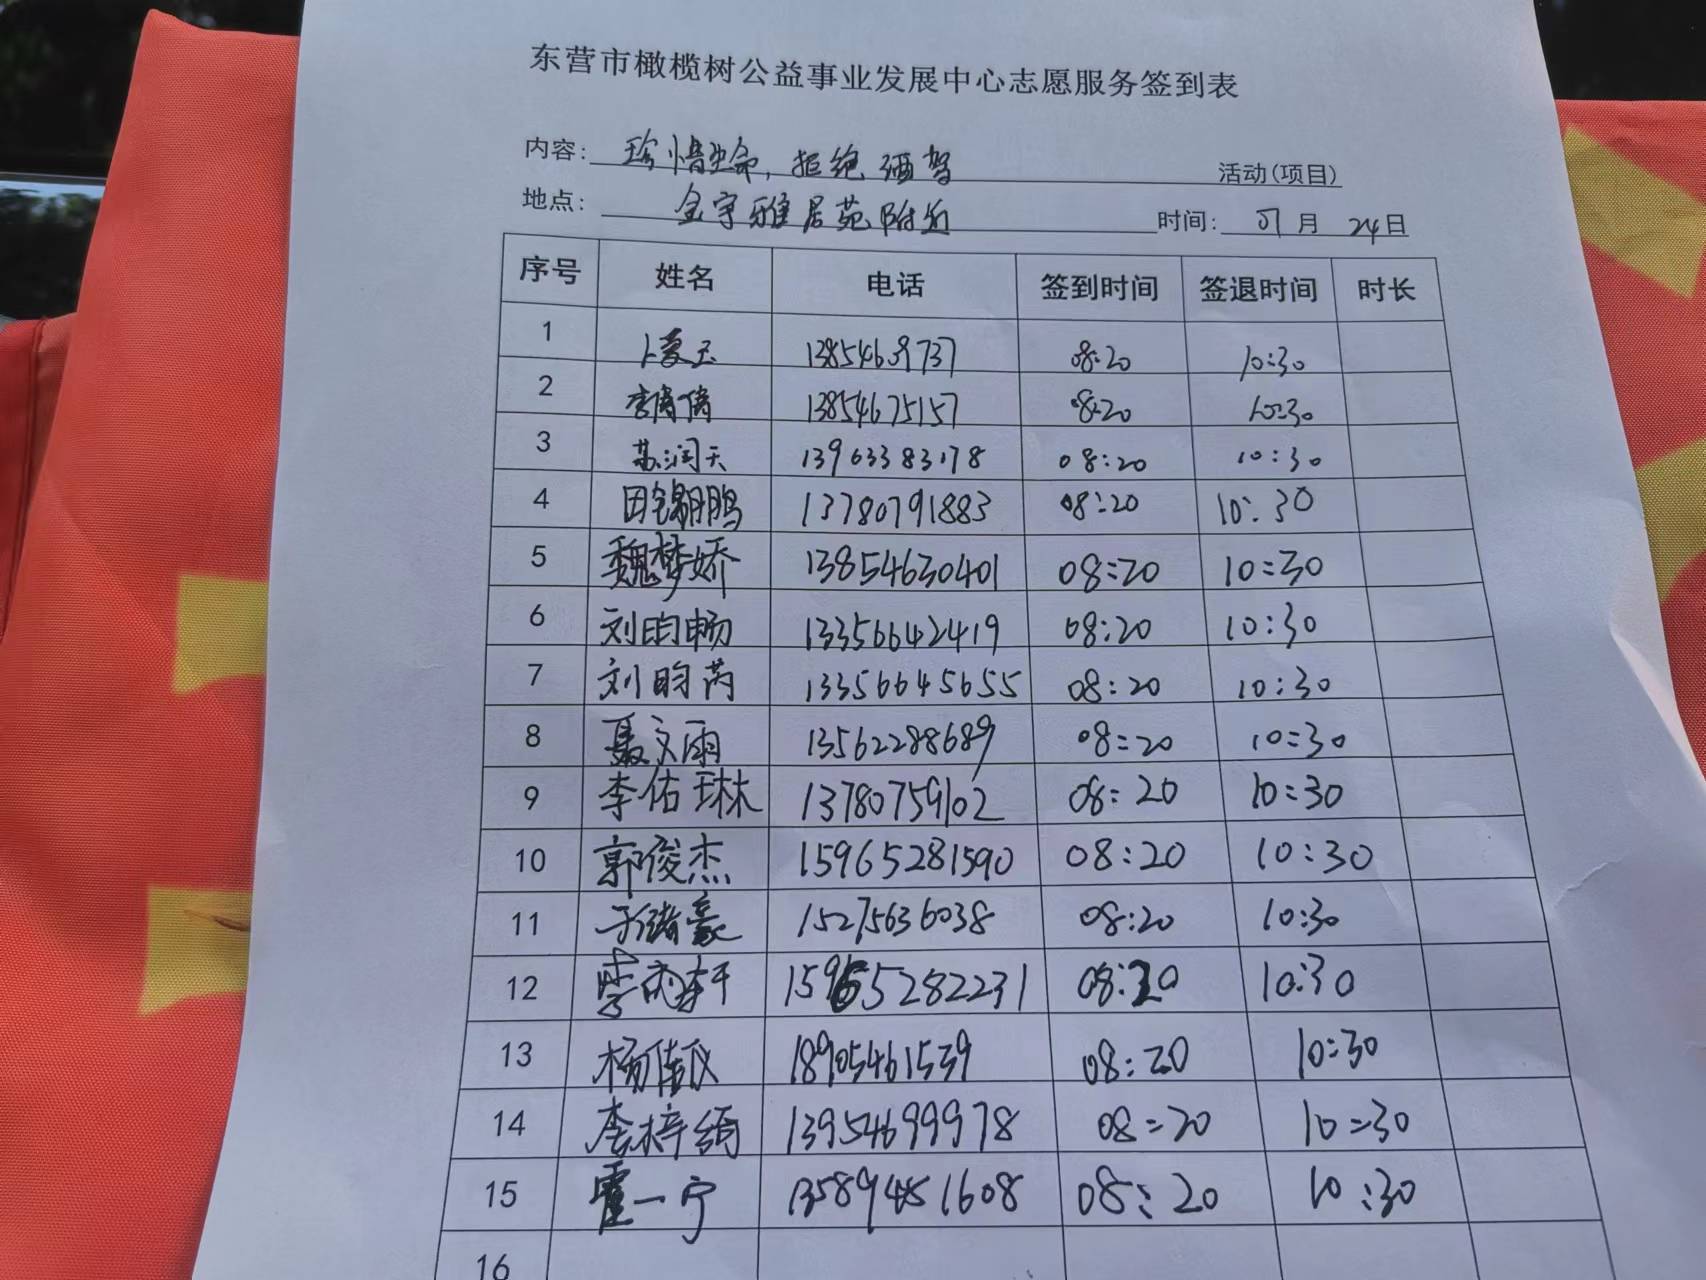 东营市橄榄树公益事业发展中心志愿服务签到表
内容: 珍惜生命,拒绝酒驾 活动(项目)
地点: 金宇雅居苑附近 时间: 07月 24日
序号 姓名 电话 签到时间 签退时间 时长
1 卜夏玉 13854609737 08:20 10:30
2 李倩倩 13854675157 08:20 10:30
3 苏润天 13963383178 08:20 10:30
4 田锦鹏 13780791883 08:20 10:30
5 魏梦娇 13854630401 08:20 10:30
6 刘昀畅 13356642419 08:20 10:30
7 刘昀芮 13356645655 08:20 10:30
8 聂文雨 13562288689 08:20 10:30
9 李佑琳 13780759102 08:20 10:30
10 郭俊杰 15965281590 08:20 10:30
11 于储豪 15275636038 08:20 10:30
12 李雨轩 15965282231 08:20 10:30
13 杨 18905461539 08:20 10:30
14 李梓绮 13954699978 08:20 10:30
15 霍一宁 13589451608 08:20 10:30
16